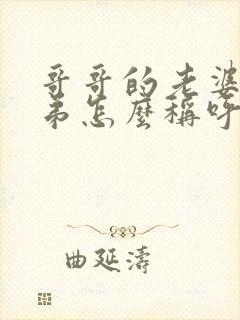 哥哥的老婆
弟怎麼稱呼
曲延濤